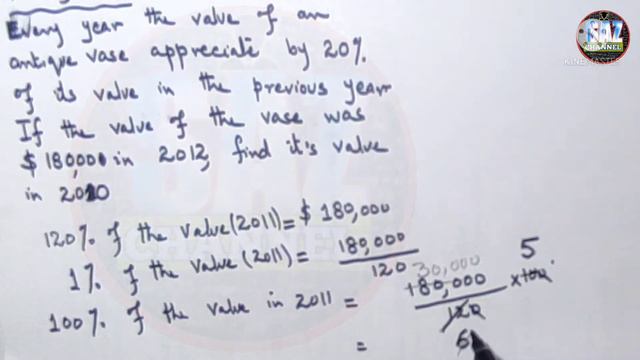 Every year the value of an
antique vase appreciate by 20%.
of its value in the previous year
If the value of the vase was
$ 180,000 in 2012, find it's value
in 2010
120% of the value (2011) = $ 180,000
1% of the value (2011) = 180,000
120
100% of the value in 2011 = 180,000 × 100
30,000 5
120
6
=
SAZ
CHANNEL
KINEMASTER